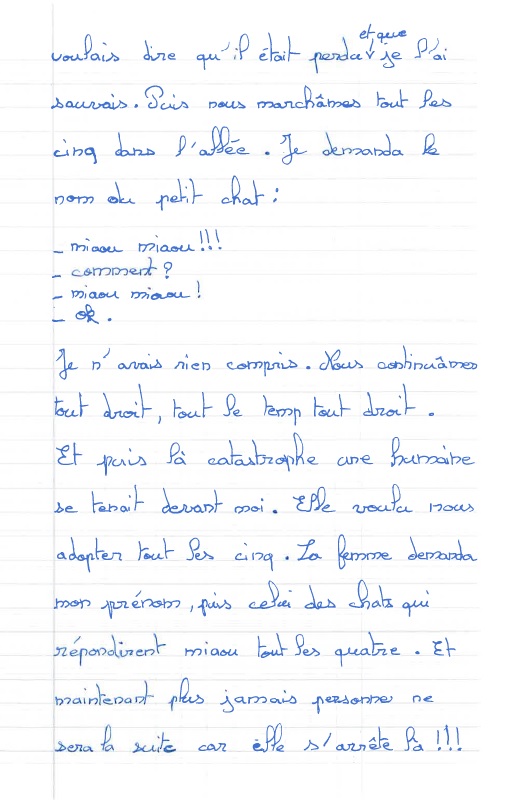 et que
voulais dire qu'il était perdu je l'ai
sauvais. Puis nous marchâmes tout les
cinq dans l'allée. Je demanda le
nom du petit chat :
- miaou miaou !!!
- comment ?
- miaou miaou !
- ok.
Je n'avais rien compris. Nous continuâmes
tout droit, tout le temp tout droit.
Et puis là catastrophe une humaine
se tenait devant moi. Elle voulu nous
adopter tout les cinq. La femme demanda
mon prénom, puis celui des chats qui
répondirent miaou tout les quatre. Et
maintenant plus jamais personne ne
sera la suite car elle s'arrête là !!!